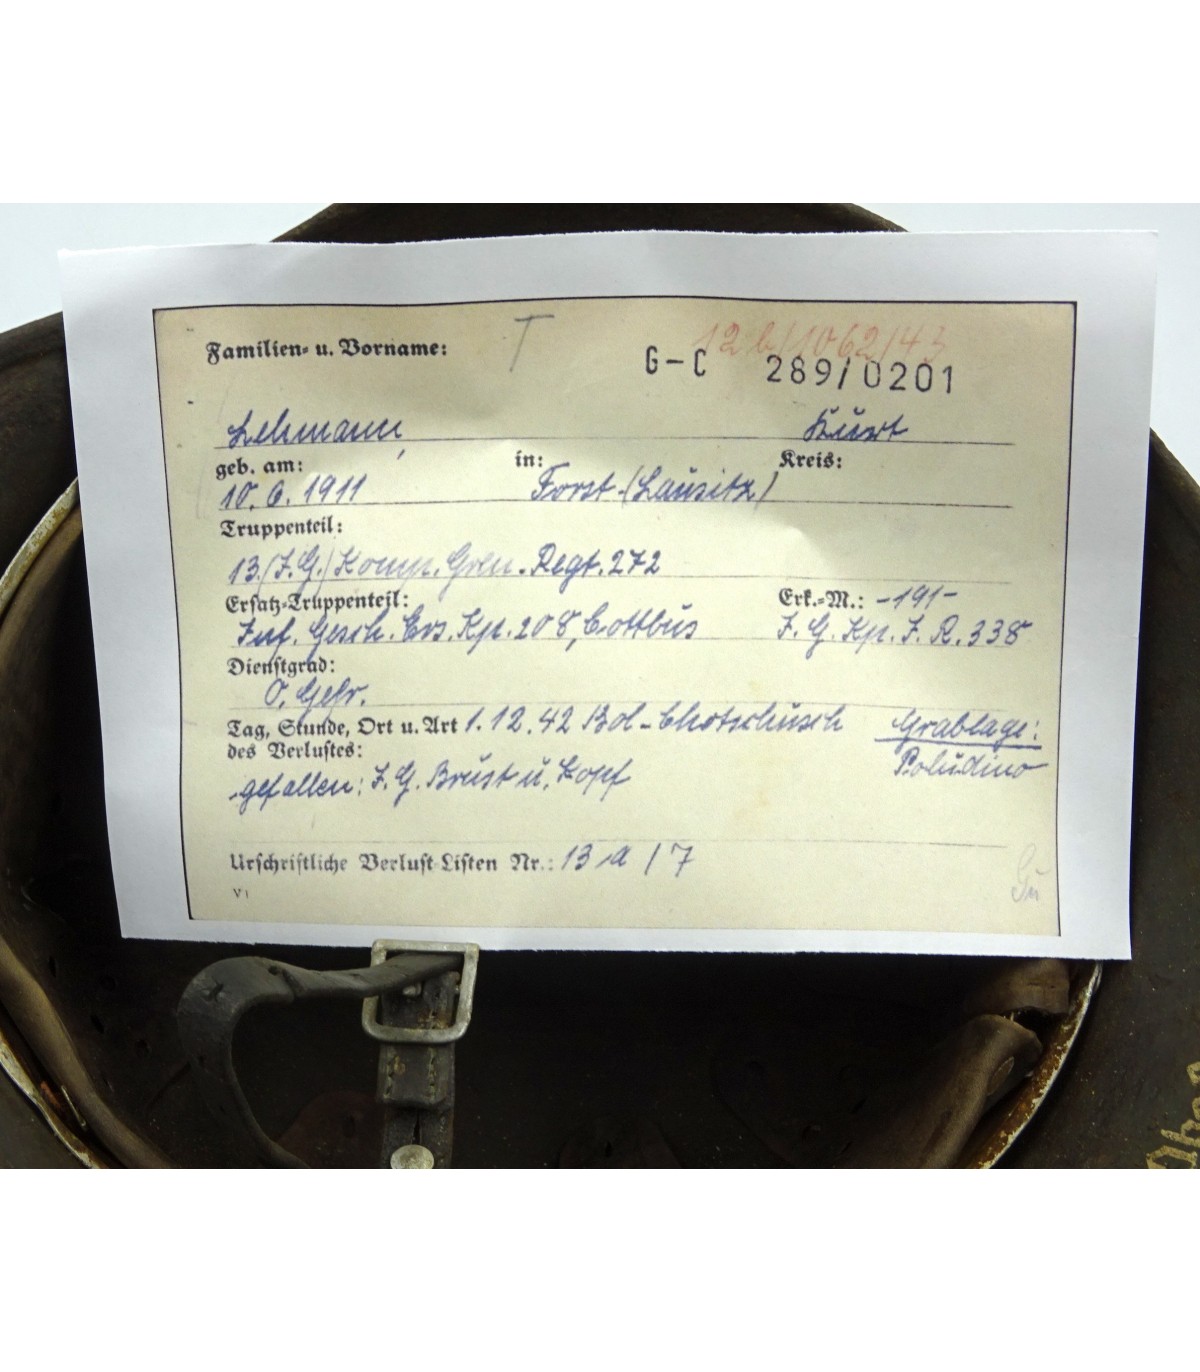 12 b/1062/43
Familien- u. Vorname: T
G-C 289/0201
Lehmann, Kurt
geb. am: in: Kreis:
10. 6. 1911 Forst (Lausitz)
Truppenteil:
13./(I.G.) Komp. Gren. Regt. 272
Ersatz-Truppenteil: Erk.-M.: -191-
Inf. Gesch. Ers. Kp. 208, Cottbus I. G. Kp. I. R. 338
Dienstgrad:
O. Gefr.
Tag, Stunde, Ort u. Art 1. 12. 42 Bol-Chotschusch Grablage:
des Verlustes: Poludino
gefallen: I. G. Brust u. Kopf
Urschriftliche Verlust-Listen Nr.: 13 a / 7
V1